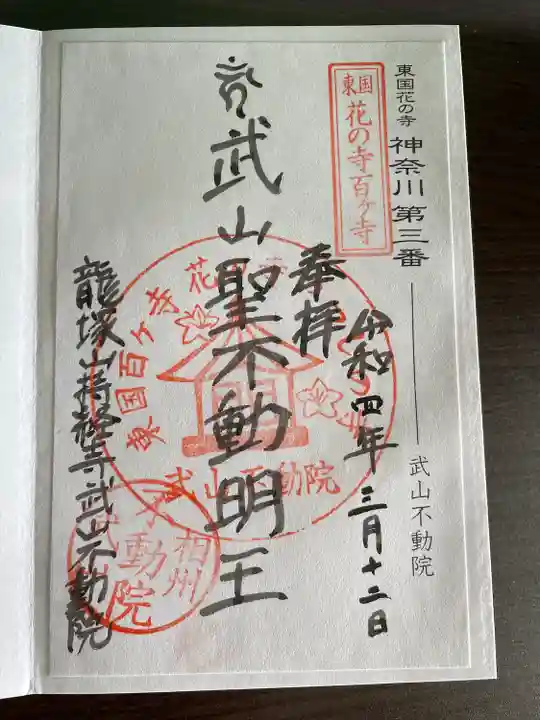 東国花の寺 神奈川 第三番
武山不動院
東国
花の寺百ヶ寺
令和四年三月十二日
奉拝
武山聖不動明王
東国百ヶ寺 花
武山不動院
相州
不動院
龍塚山持経寺武山不動院